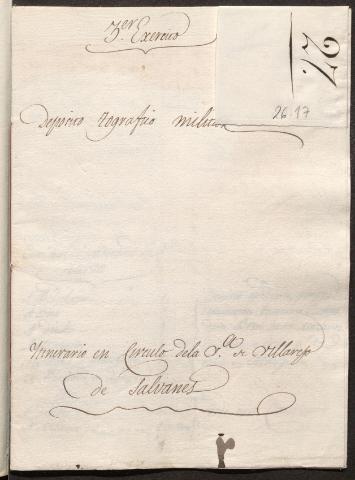 3.er Exercito
27.
26.17
Deposito Tografico militar
Ytinerario en Circulo de la V.ª de Villarejo
de Salvanes